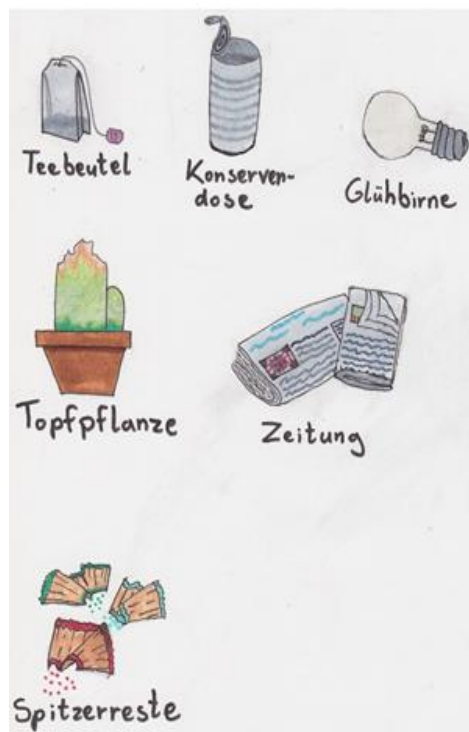 Teebeutel
Konserven-
dose
Glühbirne
Topfpflanze
Zeitung
Spitzerreste